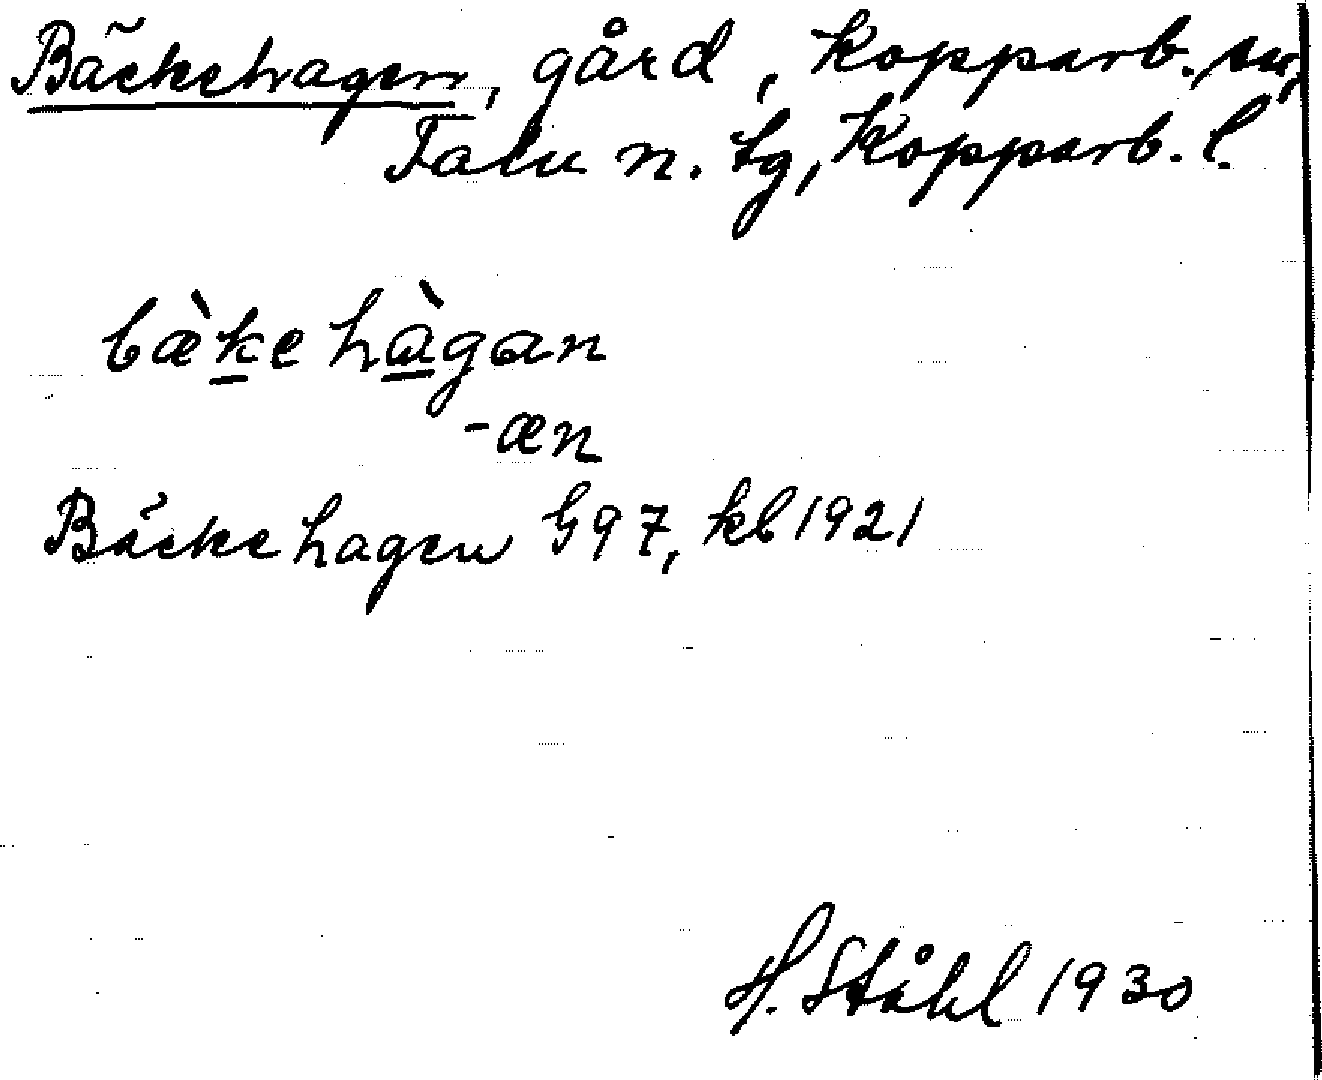 Bäckehagen, gård, Kopparb. sn,
Falu n. tg, Kopparb. l.
bæ̀ke hàgan
-æn
Bäckehagen G97, kb 1921
H. Ståhl 1930